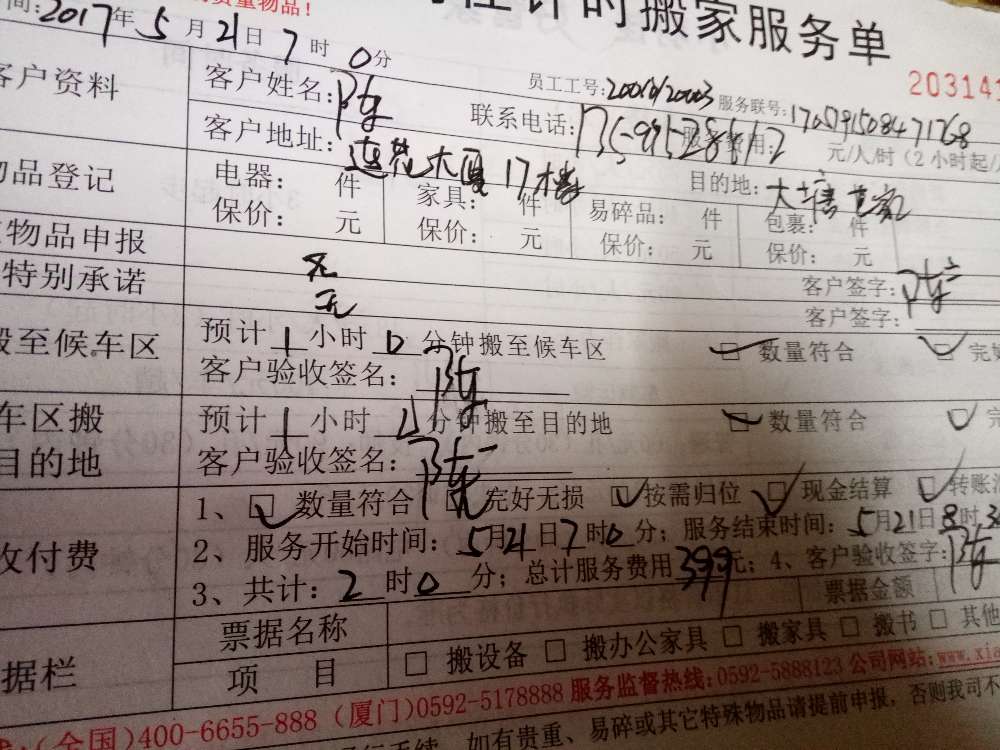 贵重物品!
计时搬家服务单
间:2017年5月21日7时0分
员工工号:
服务联号:17057915084471768
203141
客户资料 客户姓名:
联系电话:
服务费用: 元/人/时(2小时起/
客户地址:莲花大厦17楼
目的地:
物品登记 电器: 件 家具: 件 易碎品: 件 包裹: 件
保价: 元 保价: 元 保价: 元 保价: 元
物品申报 无 客户签字:
特别承诺 无 客户签字:
搬至候车区 预计1小时0分钟搬至候车区 数量符合 完好
客户验收签名:
车区搬 预计1小时 分钟搬至目的地 数量符合 完
目的地 客户验收签名:
收付费 1、数量符合 完好无损 按需归位 现金结算 转账
2、服务开始时间:5月21日7时0分;服务结束时间:5月21日8时3
3、共计:2时0分;总计服务费用399元;4、客户验收签字:
据栏 票据名称 票据金额
项 目 □搬设备 □搬办公家具 □搬家具 □搬书 □其他
:(全国)400-6655-888(厦门)0592-5178888服务监督热线:0592-5888123公司网站:www.xia
如有贵重、易碎或其它特殊物品请提前申报,否则我司不